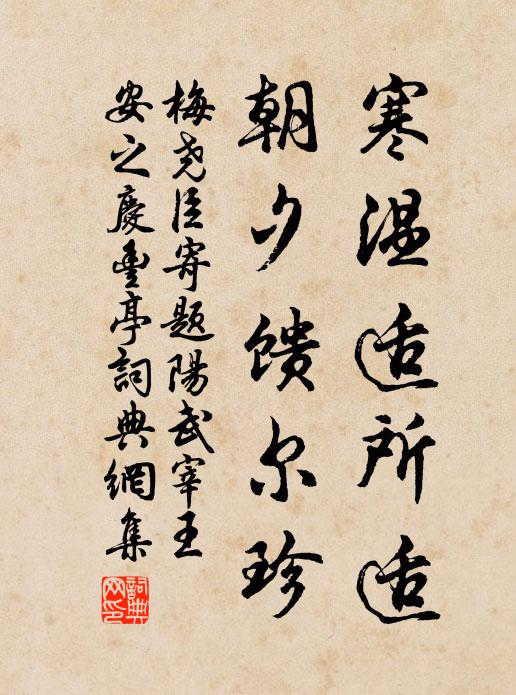 寒温适所适
朝夕馈尔珍
梅尧臣寄题陽武宰王
安之慶豊亭詞典網集
詞典網印